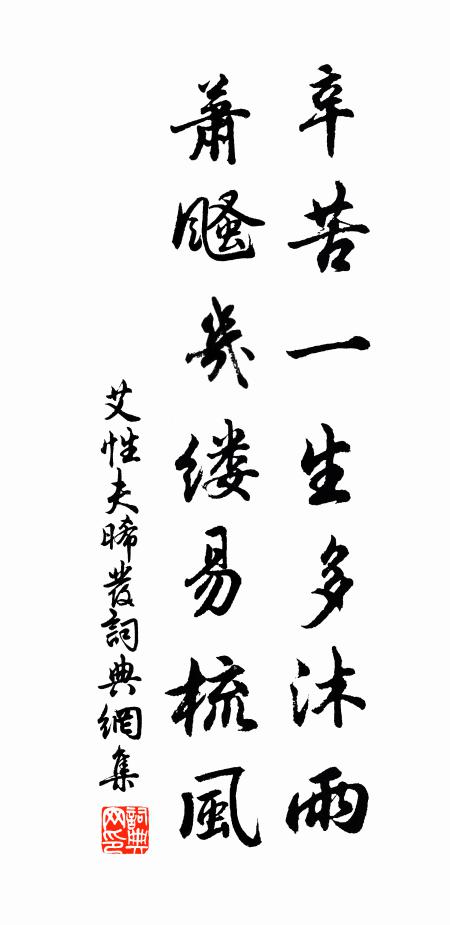 辛苦一生多沐雨
蕭飀幾缕易梳風
艾性夫晞發詞典網集
詞典网印